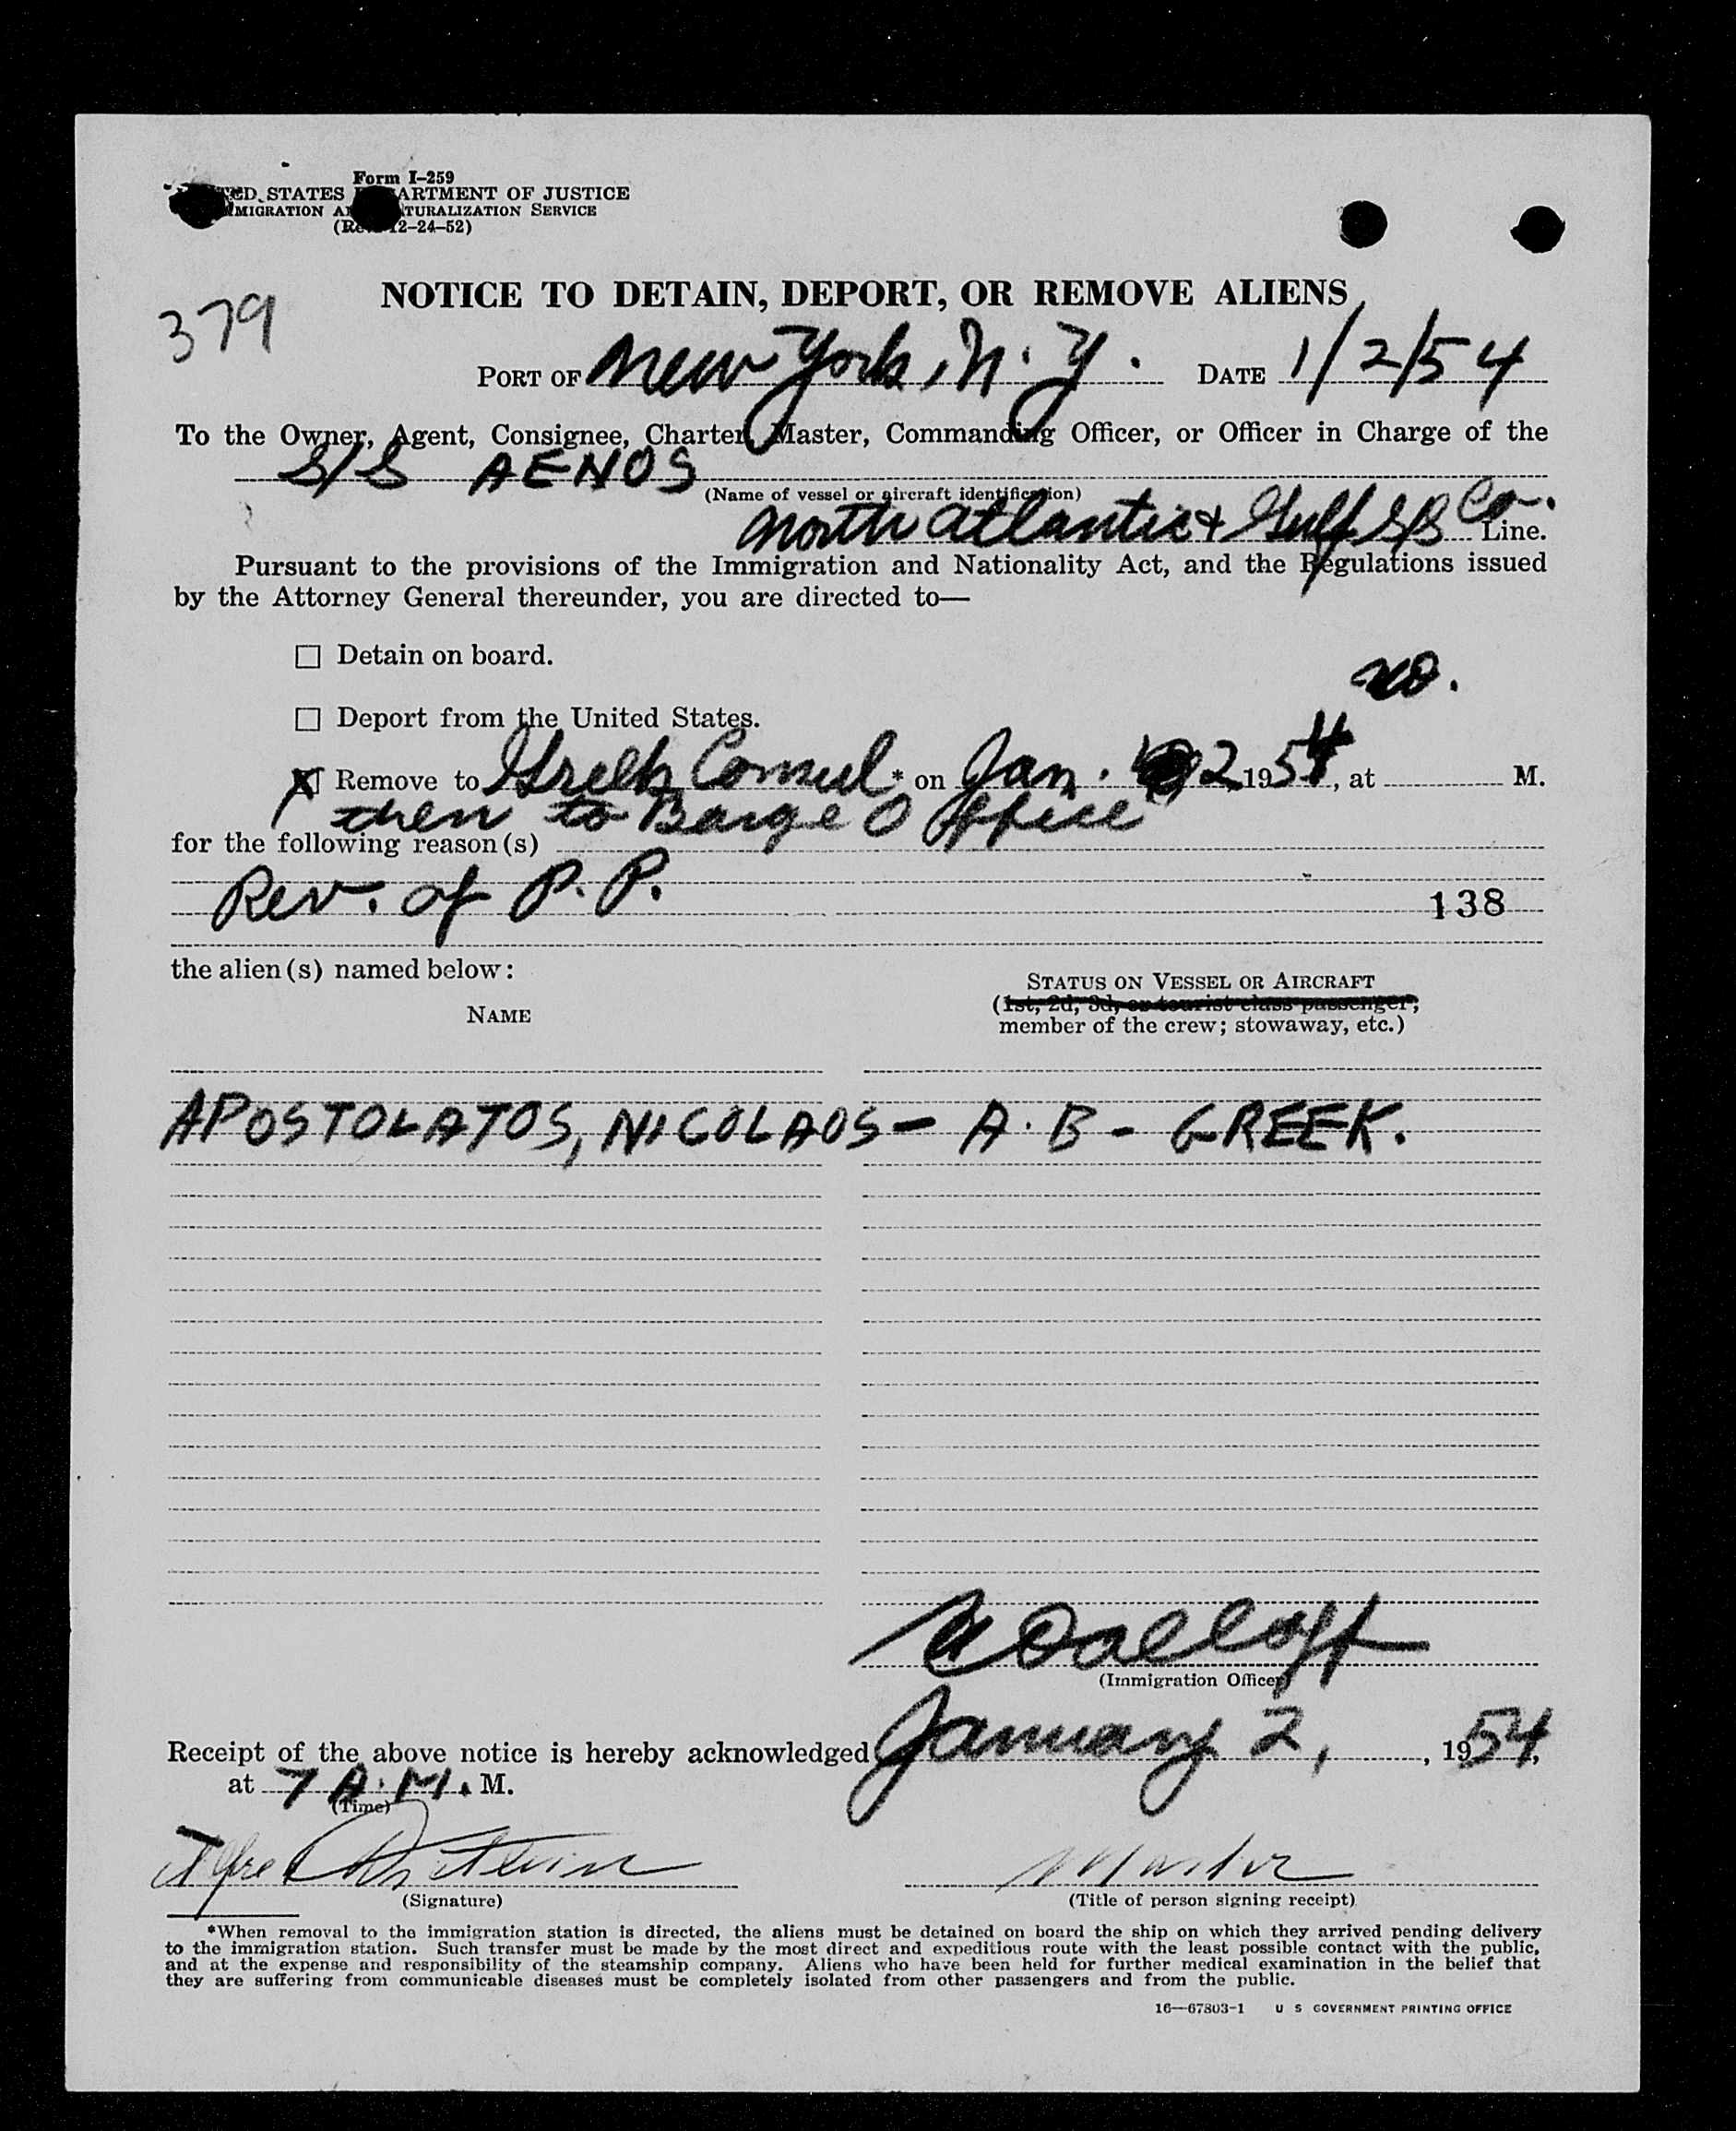 Form I-259
STATES ARTMENT OF JUSTICE
MIGRATION TURALIZATION SERVICE
12-24-52)
NOTICE TO DETAIN, DEPORT, OR REMOVE ALIENS
379
PORT OF New York, N. Y. DATE 1/2/54
To the Owner, Agent, Consignee, Charter, Master, Commanding Officer, or Officer in Charge of the
S/S AENOS
(Name of vessel or aircraft identification)
North Atlantic & Gulf S/S Co. Line.
Pursuant to the provisions of the Immigration and Nationality Act, and the Regulations issued
by the Attorney General thereunder, you are directed to—
☐ Detain on board.
☐ Deport from the United States.
☒ Remove to Greek Consul * on Jan. 2 1954, at M.
then to Barge Office
for the following reason(s)
Rev. of P. P.
138
the alien(s) named below:
STATUS ON VESSEL OR AIRCRAFT
NAME
(1st, 2d, 3d, or tourist class passenger;
member of the crew; stowaway, etc.)
APOSTOLATOS, NICOLAOS - A.B - GREEK.
(Immigration Officer)
Receipt of the above notice is hereby acknowledged January 2, , 1954,
at 7 A.M. M.
(Time)
Master
(Signature) (Title of person signing receipt)
*When removal to the immigration station is directed, the aliens must be detained on board the ship on which they arrived pending delivery
to the immigration station. Such transfer must be made by the most direct and expeditious route with the least possible contact with the public,
and at the expense and responsibility of the steamship company. Aliens who have been held for further medical examination in the belief that
they are suffering from communicable diseases must be completely isolated from other passengers and from the public.
16—67803-1 U S GOVERNMENT PRINTING OFFICE